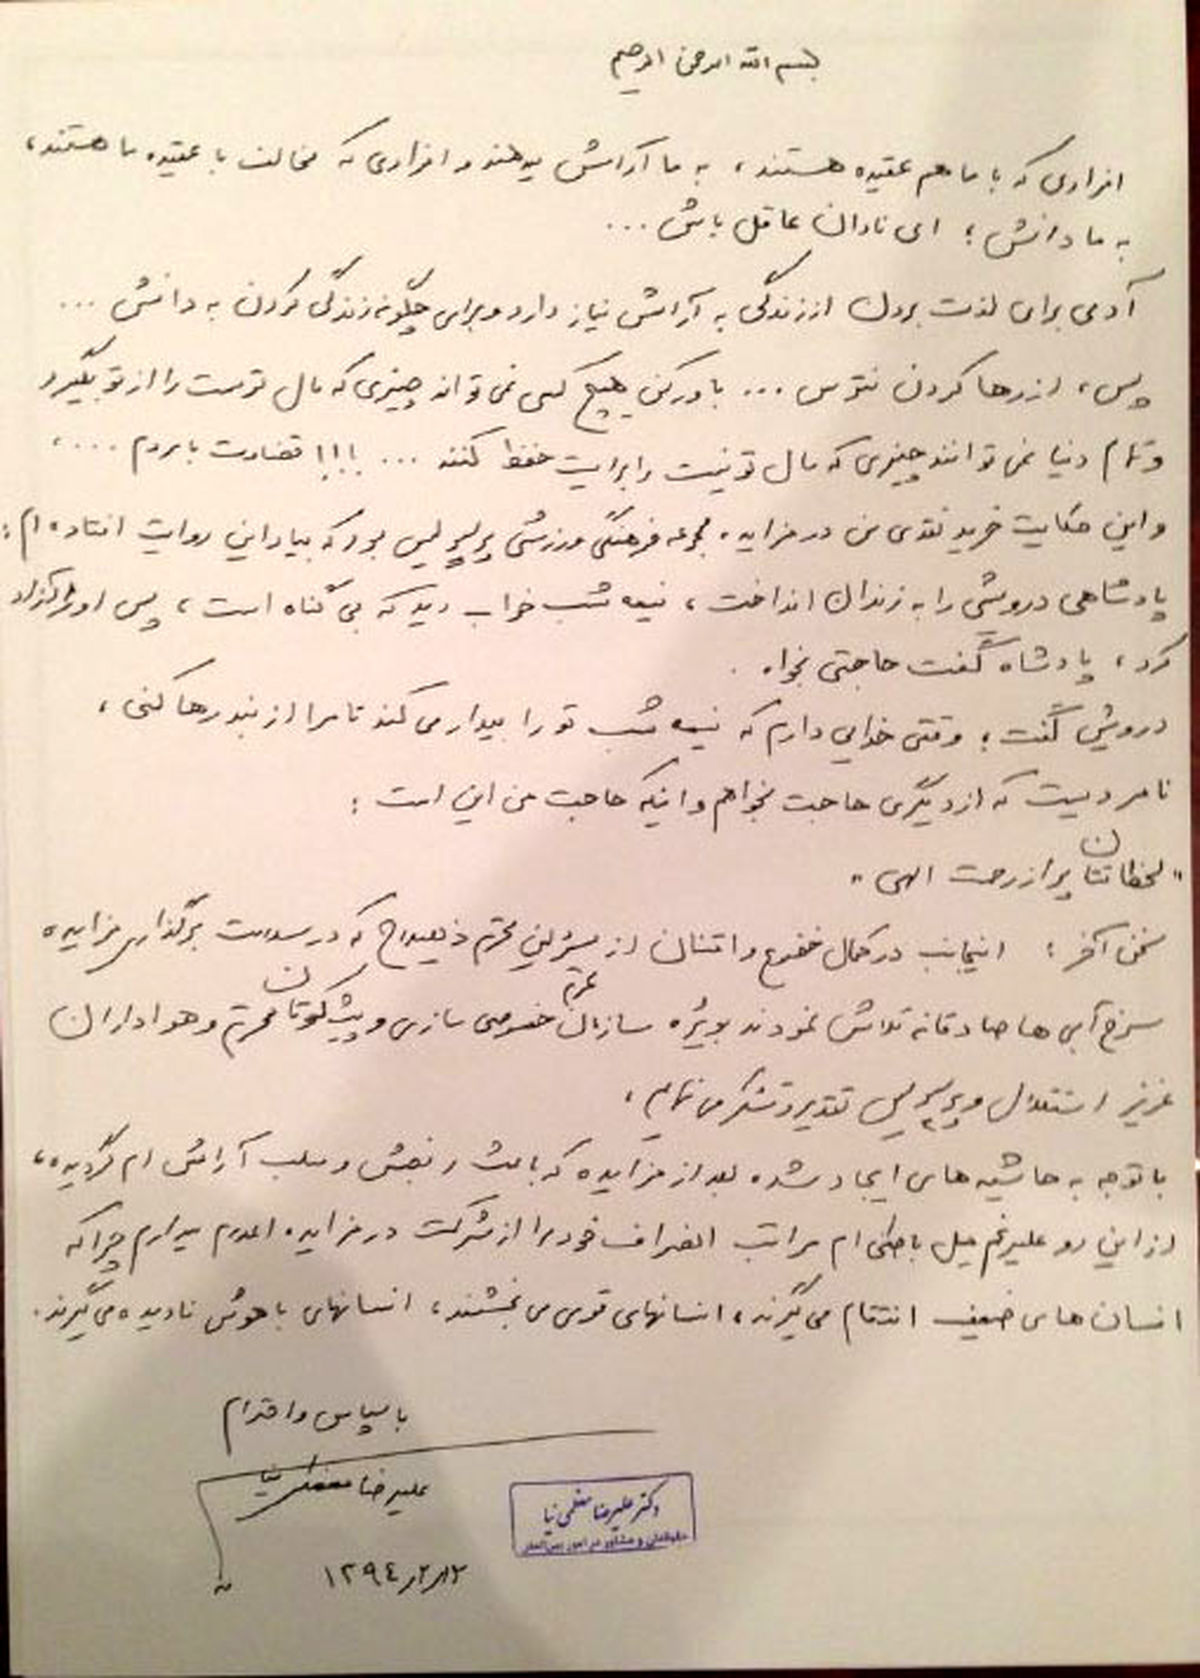 بسم الله الرحمن الرحیم
افرادی که با ما هم عقیده هستند، به ما آرامش میدهند و افرادی که مخالف با عقیده ما هستند،
به ما دانش؛ ای نادان عاقل باش ...
آدمی برای لذت بردن از زندگی به آرامش نیاز دارد و برای چگونه زندگی کردن به دانش ...
پس، از رها کردن نترس ... باور کن هیچ کس نمی تواند چیزی که مال توست را از تو بگیرد
و تمام دنیا نمی توانند چیزی که مال تو نیست را برایت حفظ کنند ... !!!! قضاوت با مردم ....،
و این حکایت خرید نقدی من در مزایده مجموعه فرهنگی ورزشی پرسپولیس بود که بیاد این روایت افتاده ام:
پادشاهی درویشی را به زندان انداخت، نیمه شب خواب دید که بی گناه است، پس او را آزاد
کرد، پادشاه گفت حاجتی بخواه.
درویش گفت؛ وقتی خدایی دارم که نیمه شب تو را بیدار می کند تا مرا از بند رها کنی،
نامردیست که از دیگری حاجت بخواهم و اینکه حاجت من این است:
"لحظاتتان پر از رحمت الهی"
سخن آخر: اینجانب در کمال خضوع و امتنان از مسئولین محترم ذیصلاح که در سلامت برگذاری مزایده
سرخ آبی ها صادقانه تلاش نمودند بویژه سازمان محترم خصوصی سازی و پیشکسوتان محترم و هواداران
عزیز استقلال و پرسپولیس تقدیر و تشکر می نمایم،
با توجه به حاشیه های ایجاد شده بعد از مزایده که باعث رنجش و سلب آرامش ام گردیده،
از این رو علیرغم میل باطنی ام مراتب انصراف خود را از شرکت در مزایده اعلام میدارم چرا که
انسان های ضعیف انتقام می گیرند، انسانهای قوی می بخشند، انسانهای باهوش نادیده می گیرند.
با سپاس و احترام
علیرضا معظمی نیا
دکتر علیرضا معظمی نیا
حقوقدان و مشاور در امور بین الملل
۱۳۹٤